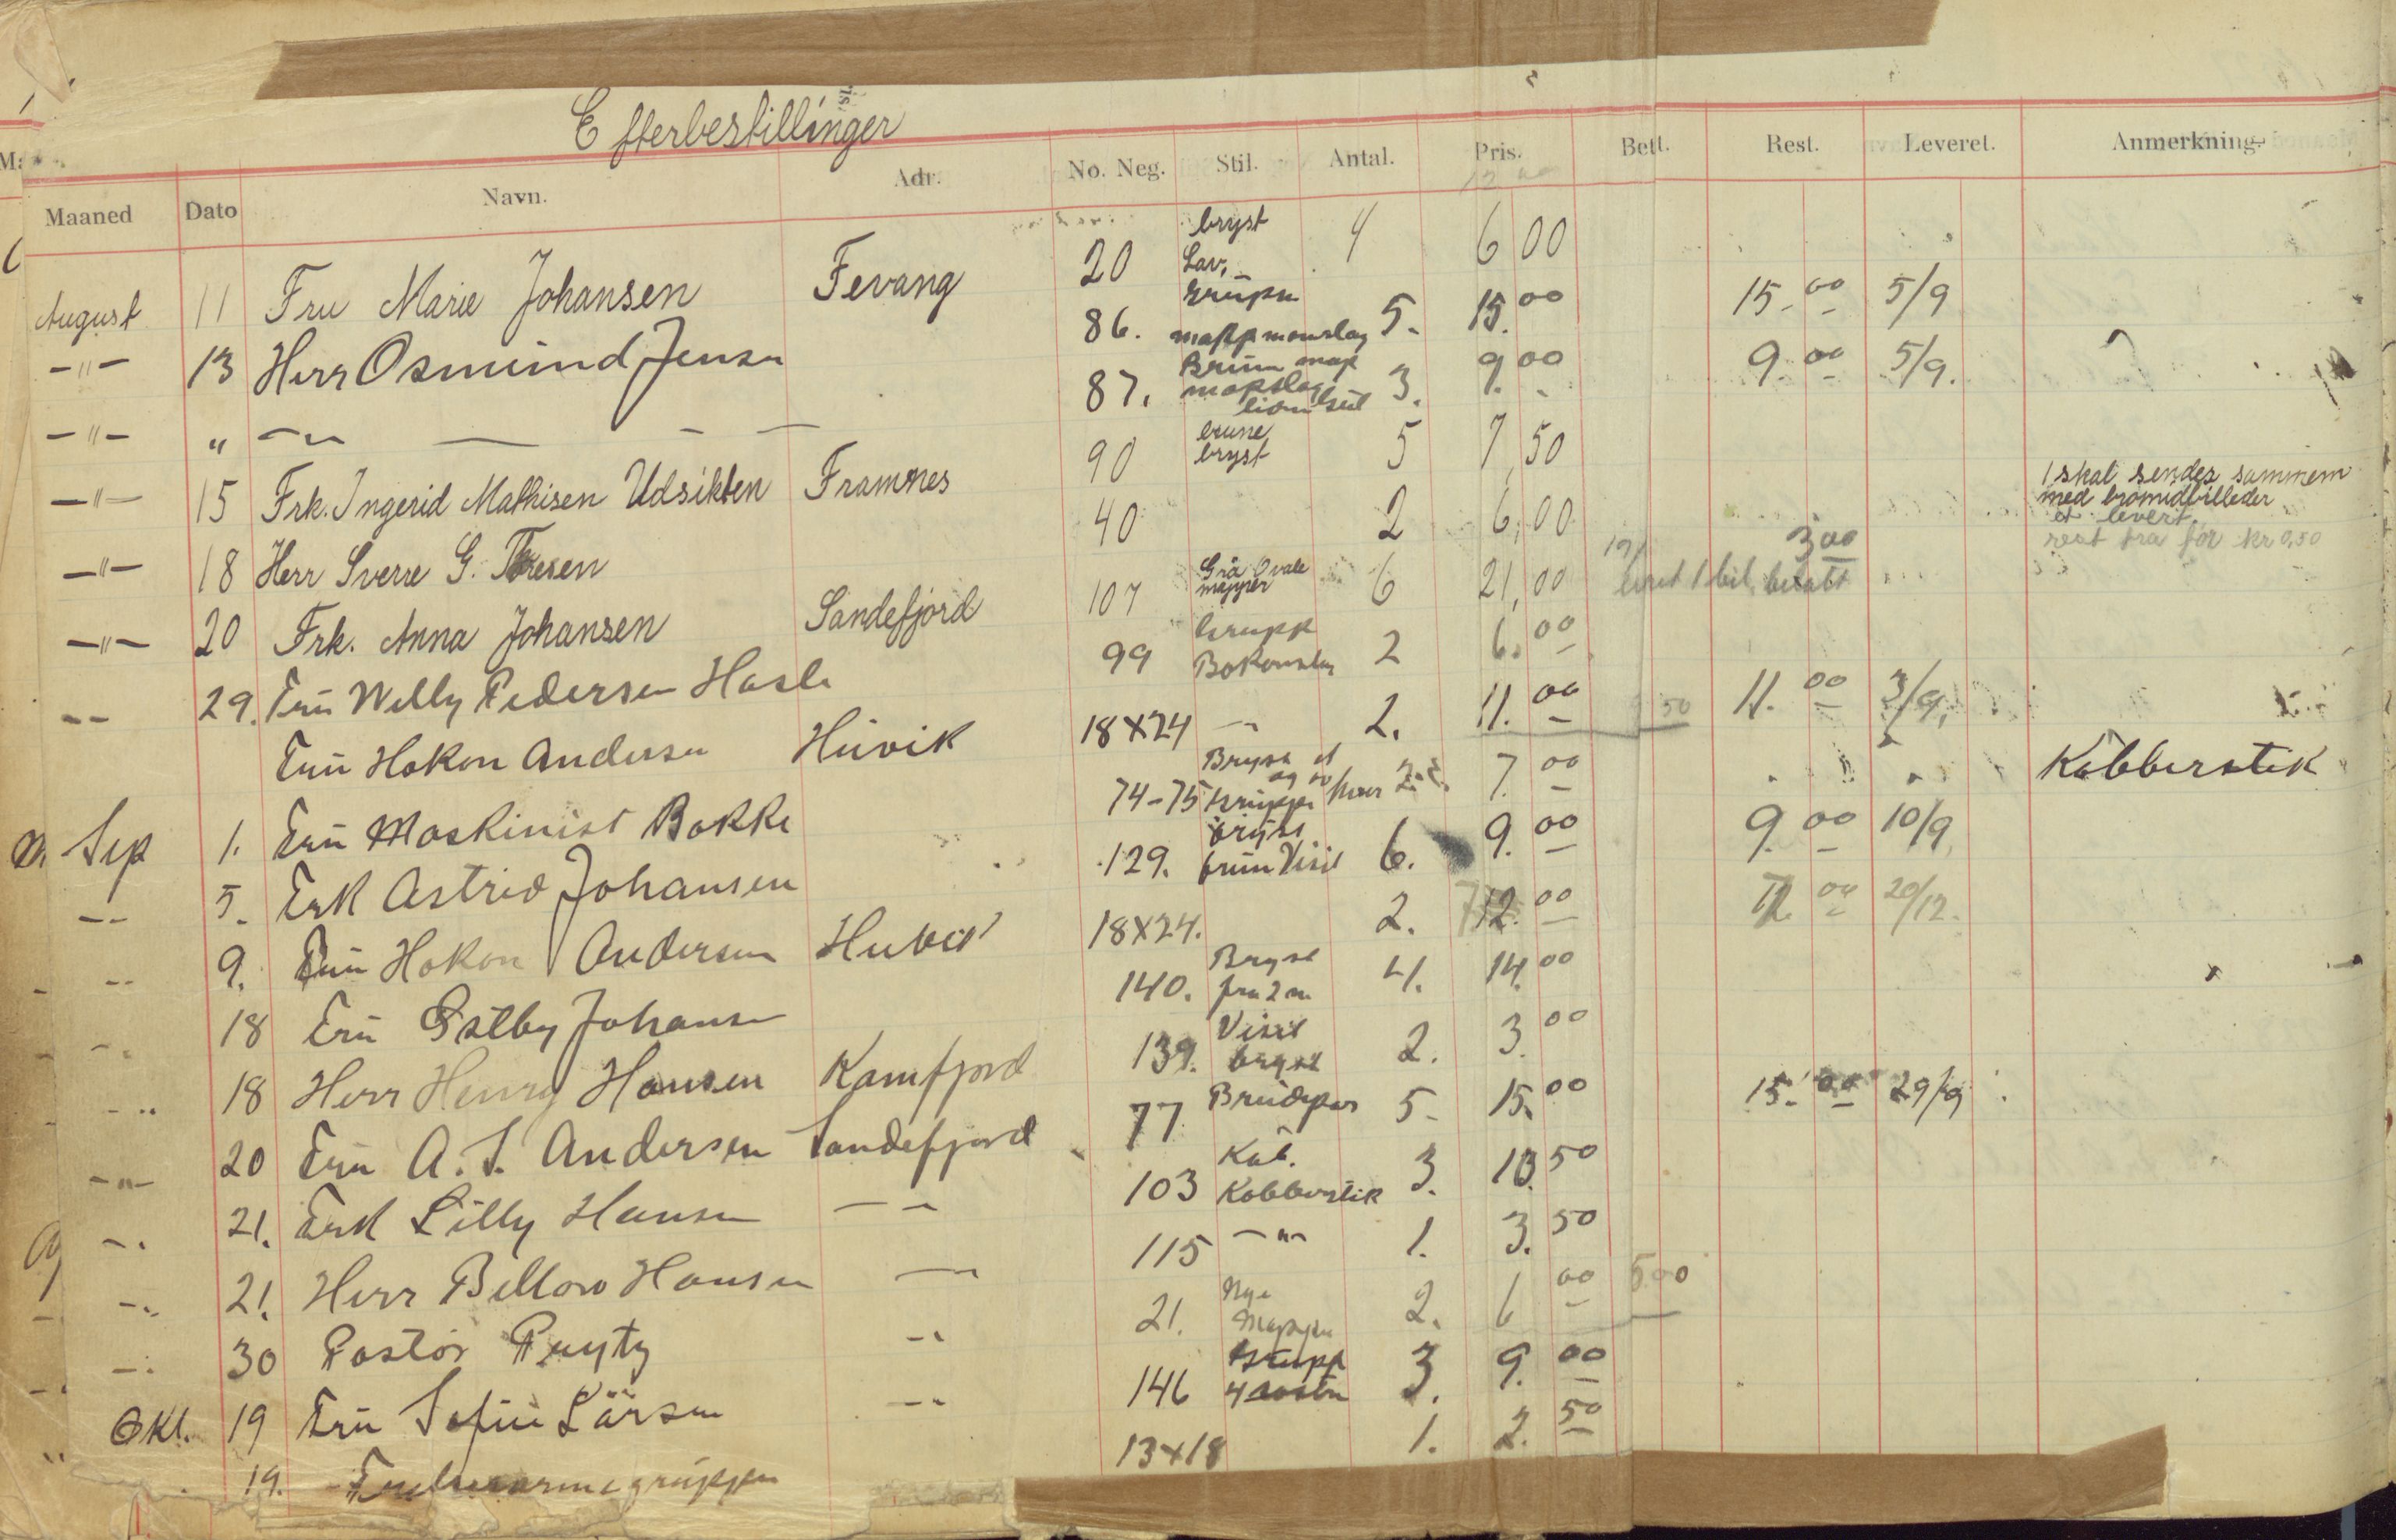 Efterbestillinger
Maaned Dato Navn. Adr. No. Neg. Stil. Antal. Pris. Bett. Rest. Leveret. Anmerkning.
August 11 Fru Marie Johansen Fevang 20 bryst Lav. 4 6 00
—"— 13 Herr Osmund Jensen 86. 5. 15.00 15.00 5/9
—"— " 87. 3. 9.00 9.00 5/9.
—"— 15 Frk. Ingerid Mathisen Udsikten Framnes 90 brune bryst 5 7,50
1 skal sendes sammem
med bromidbilleder
et levert.
rest fra før kr 0,50
—"— 18 Herr Sverre G. Thoresen 40 2 6,00 3 00
—"— 20 Frk. Anna Johansen Sandefjord 107 Grå Ovale mapper 6 21,00 1 bil. betalt
— — 29. Fru Willy Pedersen Hasle 99 Grupp 2 6.00
Fru Hakon Andersen Huvik 18x24 2. 11.00 11.00 3/9.
Sep 1. Fru Maskinist Bakke 74-75 Bryst et og to Gruppe 7.00 Kobberstik
— — 5. Frk Astrid Johansen 129. bryst brun Visit 6. 9.00 9.00 10/9
9. Fru Hakon Andersen Huvik 18x24. 2. 12.00 12.00 20/12.
18 Fru Østby Johansen 140. Bryst 4. 14.00
18 Herr Henry Hansen Kamfjord 139. Visit bryst 2. 3.00
20 Fru A. S. Andersen Sandefjord 77 Brudepar 5- 15.00 15.00 29/9
21. Frk Lilly Hansen — — 103 Kab. Kobberstik 3. 10.50
21. Herr Bellow Hansen — 115 —"— 1. 3.50
30 Pastor 21. Nye Mapper 2. 6 00 5.00
Okt. 19 Fru Sofie Larsen 146 Grupp 3. 9.00
19. gruppen 13x18 1. 2.50